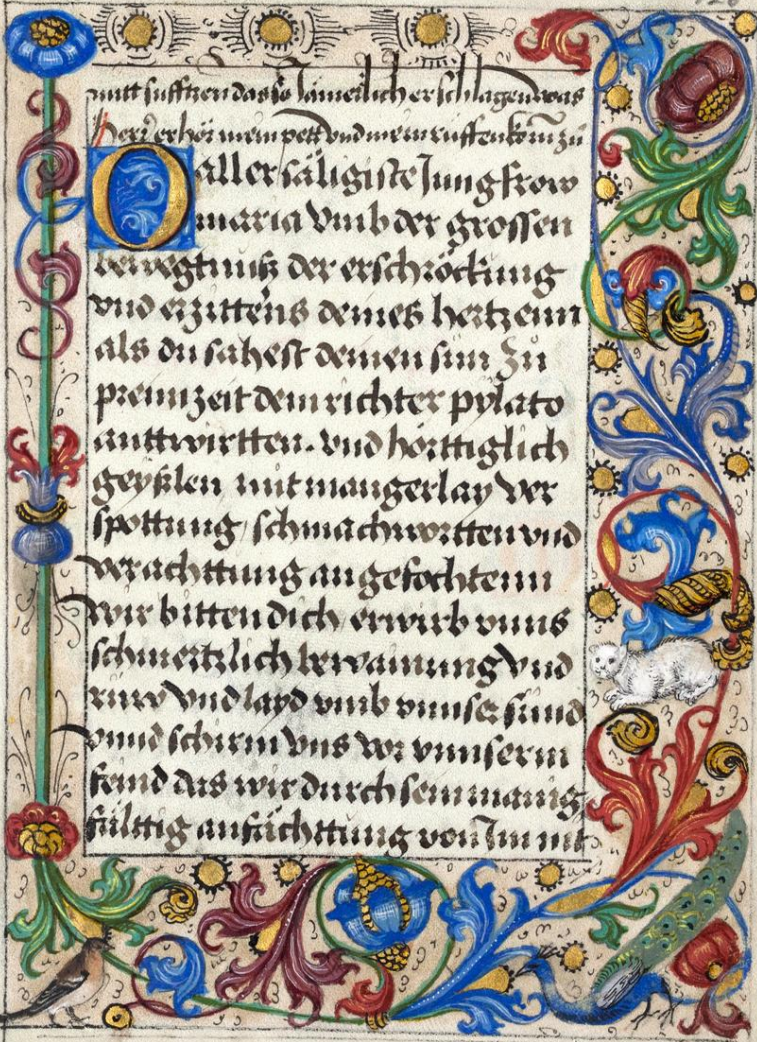 mitt sufftzen das so Jamerlich erschlagen was
Herr erhör mein pett vnd mein rüffen kom zü
O aller säligiste Jungkfrow
maria vmb der grossen
bewegtnuß der erschröckung
vnd erzitterns deines hertzenn
als du sahest deinen sun Zu
preimzeit dem richter pylato
anttwirtten. vnd hörttiglich
geyßlen mit mangerlay ver
spottung, schmachwortten vnd
verachttung angefochtenn
Wir bitten dich erwirb vnns
schmertzlich bewainung Vnd
rüw Vnd layd vmb vnnser sünd
vnnd schirm Vns vor vnnserm
feind das wir durch sein manig
fälttig anfächttung von Im nit